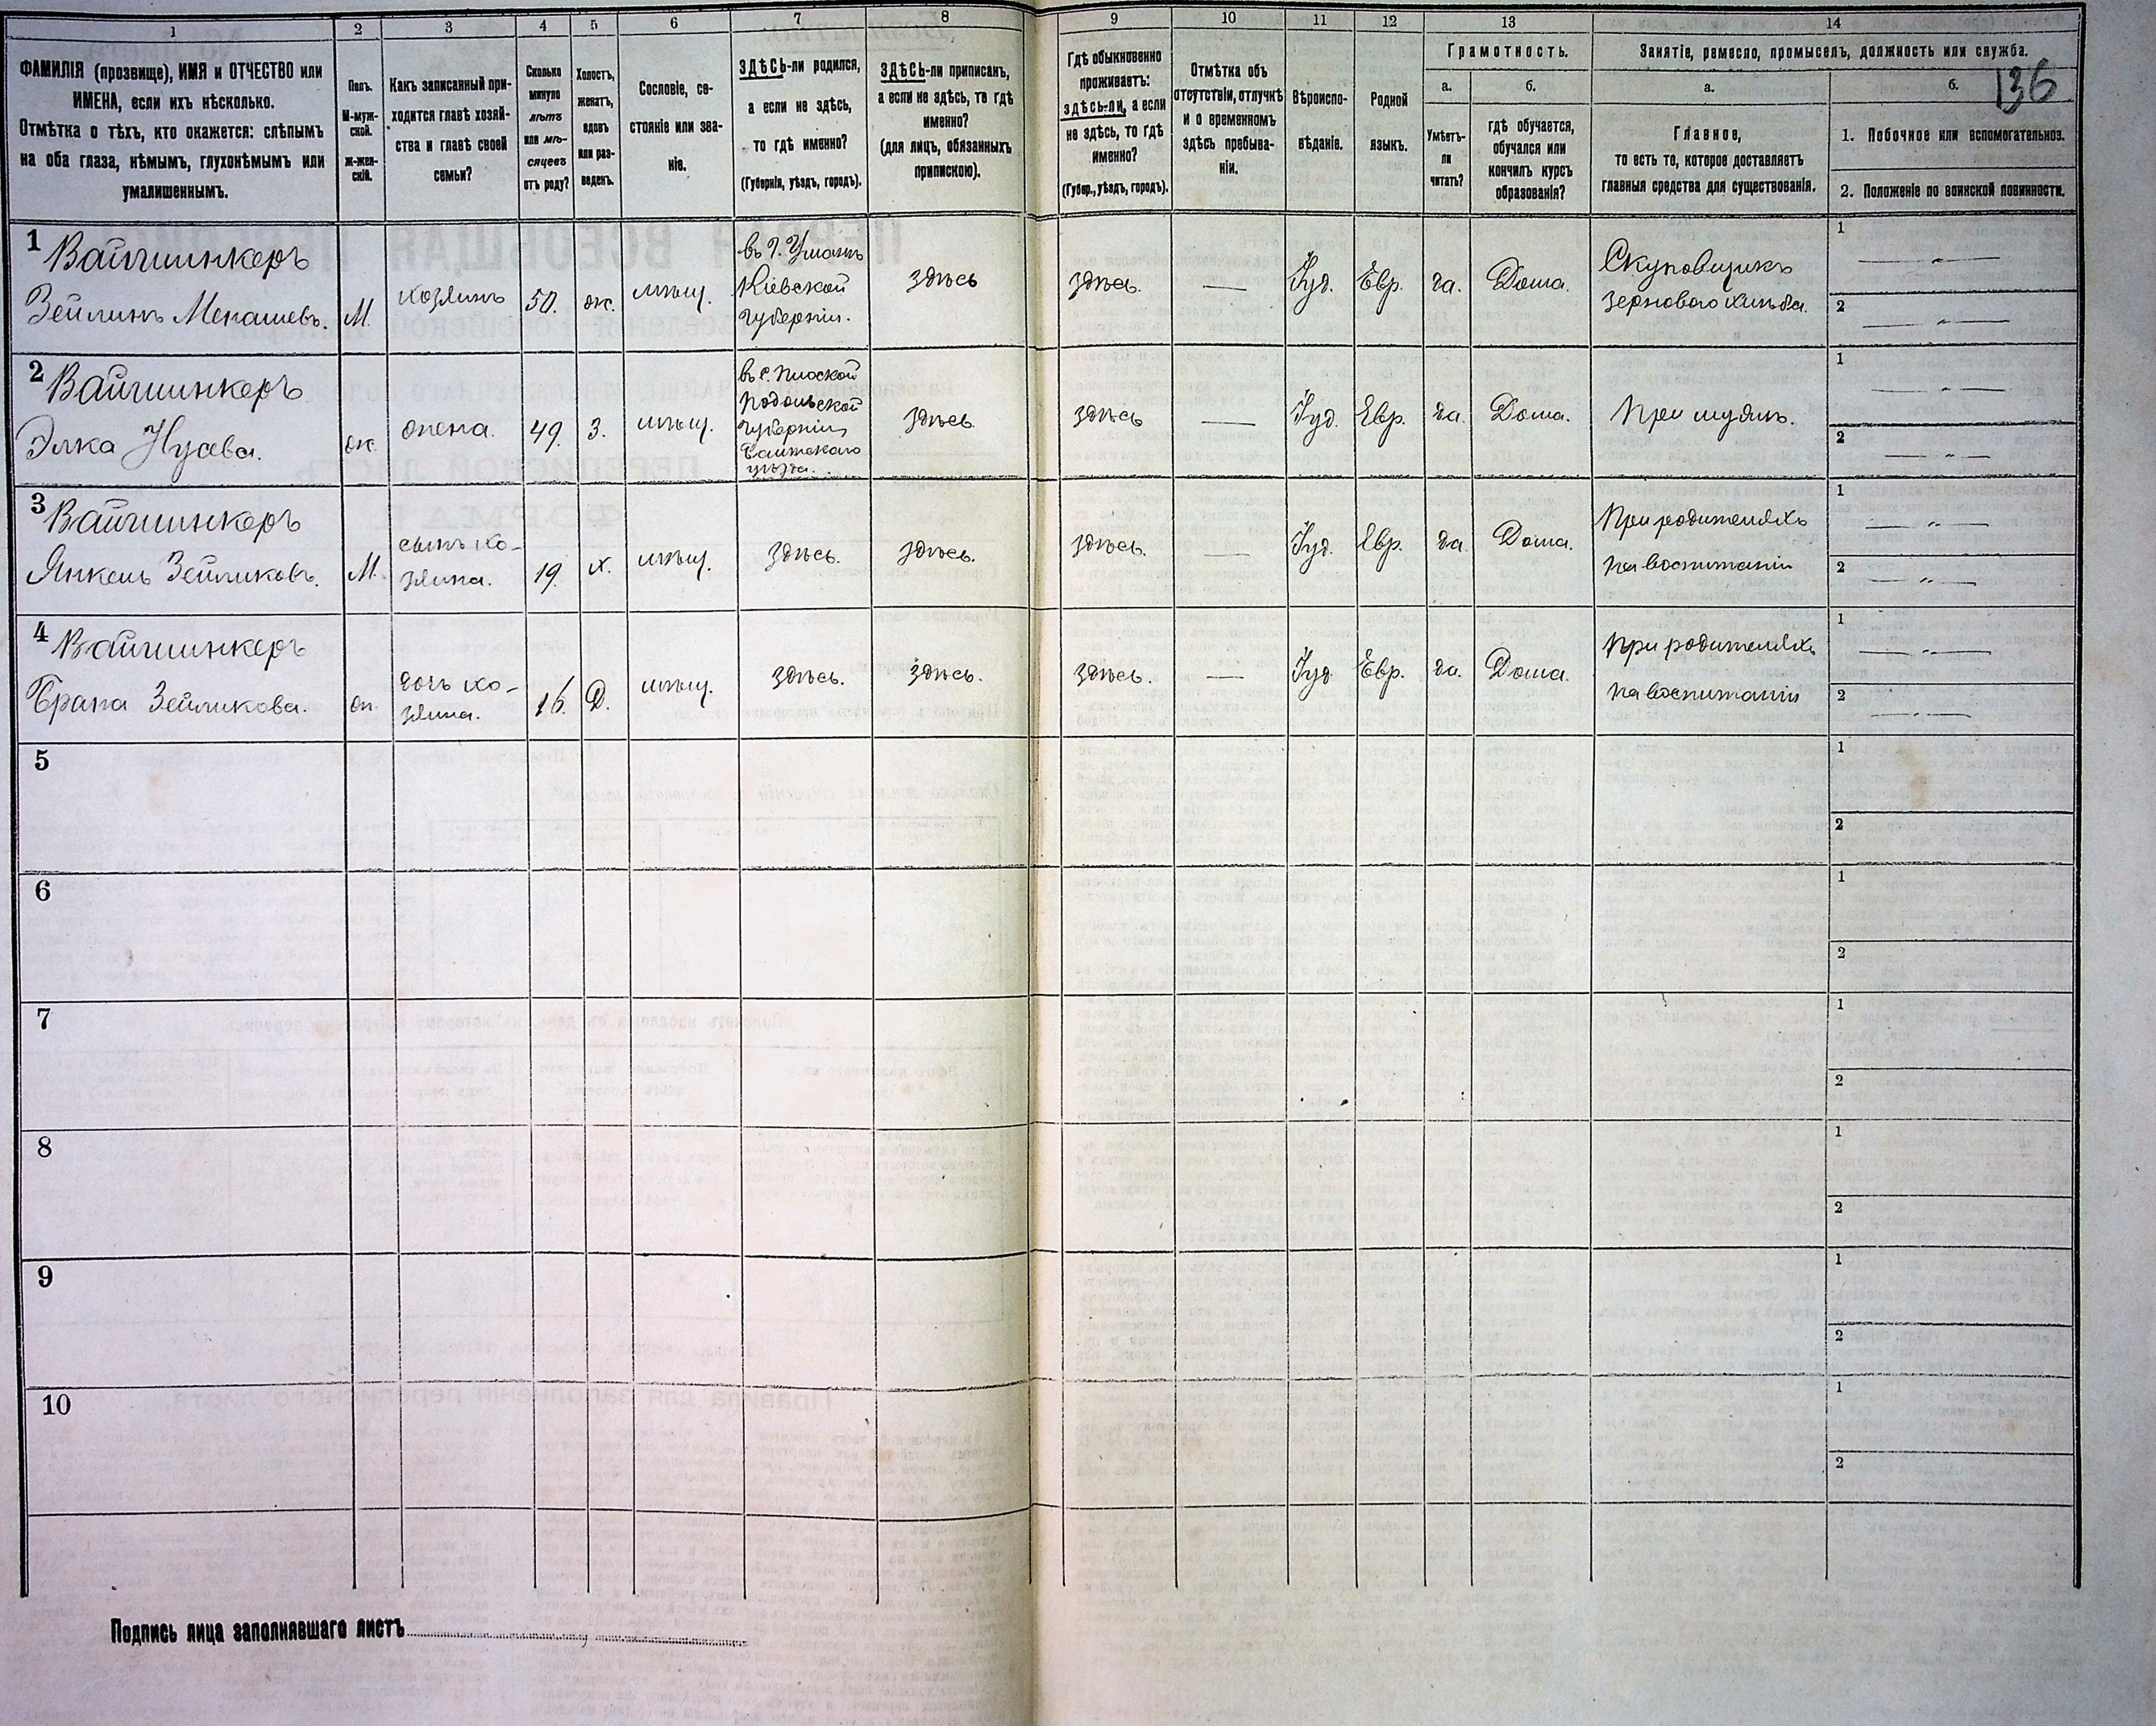 1 2 3 4 5 6 7 8 9 10 11 12 13 14
136
ФАМИЛІЯ (прозвище), ИМЯ и ОТЧЕСТВО или
ИМЕНА, если ихъ нѣсколько.
Отмѣтка о тѣхъ, кто окажется: слѣпымъ
на оба глаза, нѣмымъ, глухонѣмымъ или
умалишеннымъ.
Полъ.
М-муж-
ской.
ж-жен-
скій.
Какъ записанный при-
ходится главѣ хозяй-
ства и главѣ своей
семьи?
Сколько
минуло
лѣтъ
или мѣ-
сяцевъ
отъ роду?
Холостъ,
женатъ,
вдовъ
или раз-
веденъ.
Сословіе, со-
стояніе или зва-
ніе.
ЗДѢСЬ-ли родился,
а если не здѣсь,
то гдѣ именно?
(Губернія, уѣздъ, городъ).
ЗДѢСЬ-ли приписанъ,
а если не здѣсь, то гдѣ
именно?
(для лицъ, обязанныхъ
припискою).
Гдѣ обыкновенно
проживаетъ:
здѣсь-ли, а если
не здѣсь, то гдѣ
именно?
(Губер., уѣздъ, городъ).
Отмѣтка объ
отсутствіи, отлучкѣ
и о временномъ
здѣсь пребыва-
ніи.
Вѣроиспо-
вѣданіе.
Родной
языкъ.
Грамотность.
а.
Умѣетъ-
ли
читать?
б.
гдѣ обучается,
обучался или
кончилъ курсъ
образованія?
Занятіе, ремесло, промыселъ, должность или служба.
а.
Главное,
то есть то, которое доставляетъ
главныя средства для существованія.
б.
1. Побочное или вспомогательное.
2. Положеніе по воинской повинности.
1
Вайншинкеръ
Зейликъ Менашевъ.
М.
хозяинъ
50.
ж.
мѣщ.
въ г. Умань
Кіевской
губерніи.
здѣсь
здѣсь.
—
Іуд.
Евр.
да.
Дома.
Скуповщикъ
зернового хлѣба.
1 — „ —
2 — „ —
2
Вайншинкеръ
Элка Нусева.
ж.
жена.
49.
З.
мѣщ.
въ с.
Подольской
губерніи,
Балтскаго
уѣзда.
здѣсь
здѣсь
—
Іуд.
Евр.
да.
Дома.
При мужѣ.
1 — „ —
2 — „ —
3
Вайншинкеръ
Янкель Зейликовъ.
М.
сынъ хо-
зяина.
19.
х.
мѣщ.
здѣсь.
здѣсь.
здѣсь.
—
Іуд.
Евр.
да
Дома.
При родителяхъ
на воспитаніи
1 — „ —
2 — „ —
4
Вайншинкеръ
Брана Зейликова.
ж.
дочь хо-
зяина.
16.
Д.
мѣщ.
здѣсь.
здѣсь.
здѣсь.
—
Іуд
Евр.
да.
Дома.
При родителяхъ
на воспитаніи
1 — „ —
2 — „ —
5
1
2
6
1
2
7
1
2
8
1
2
9
1
2
10
1
2
Подпись лица заполнявшаго листъ